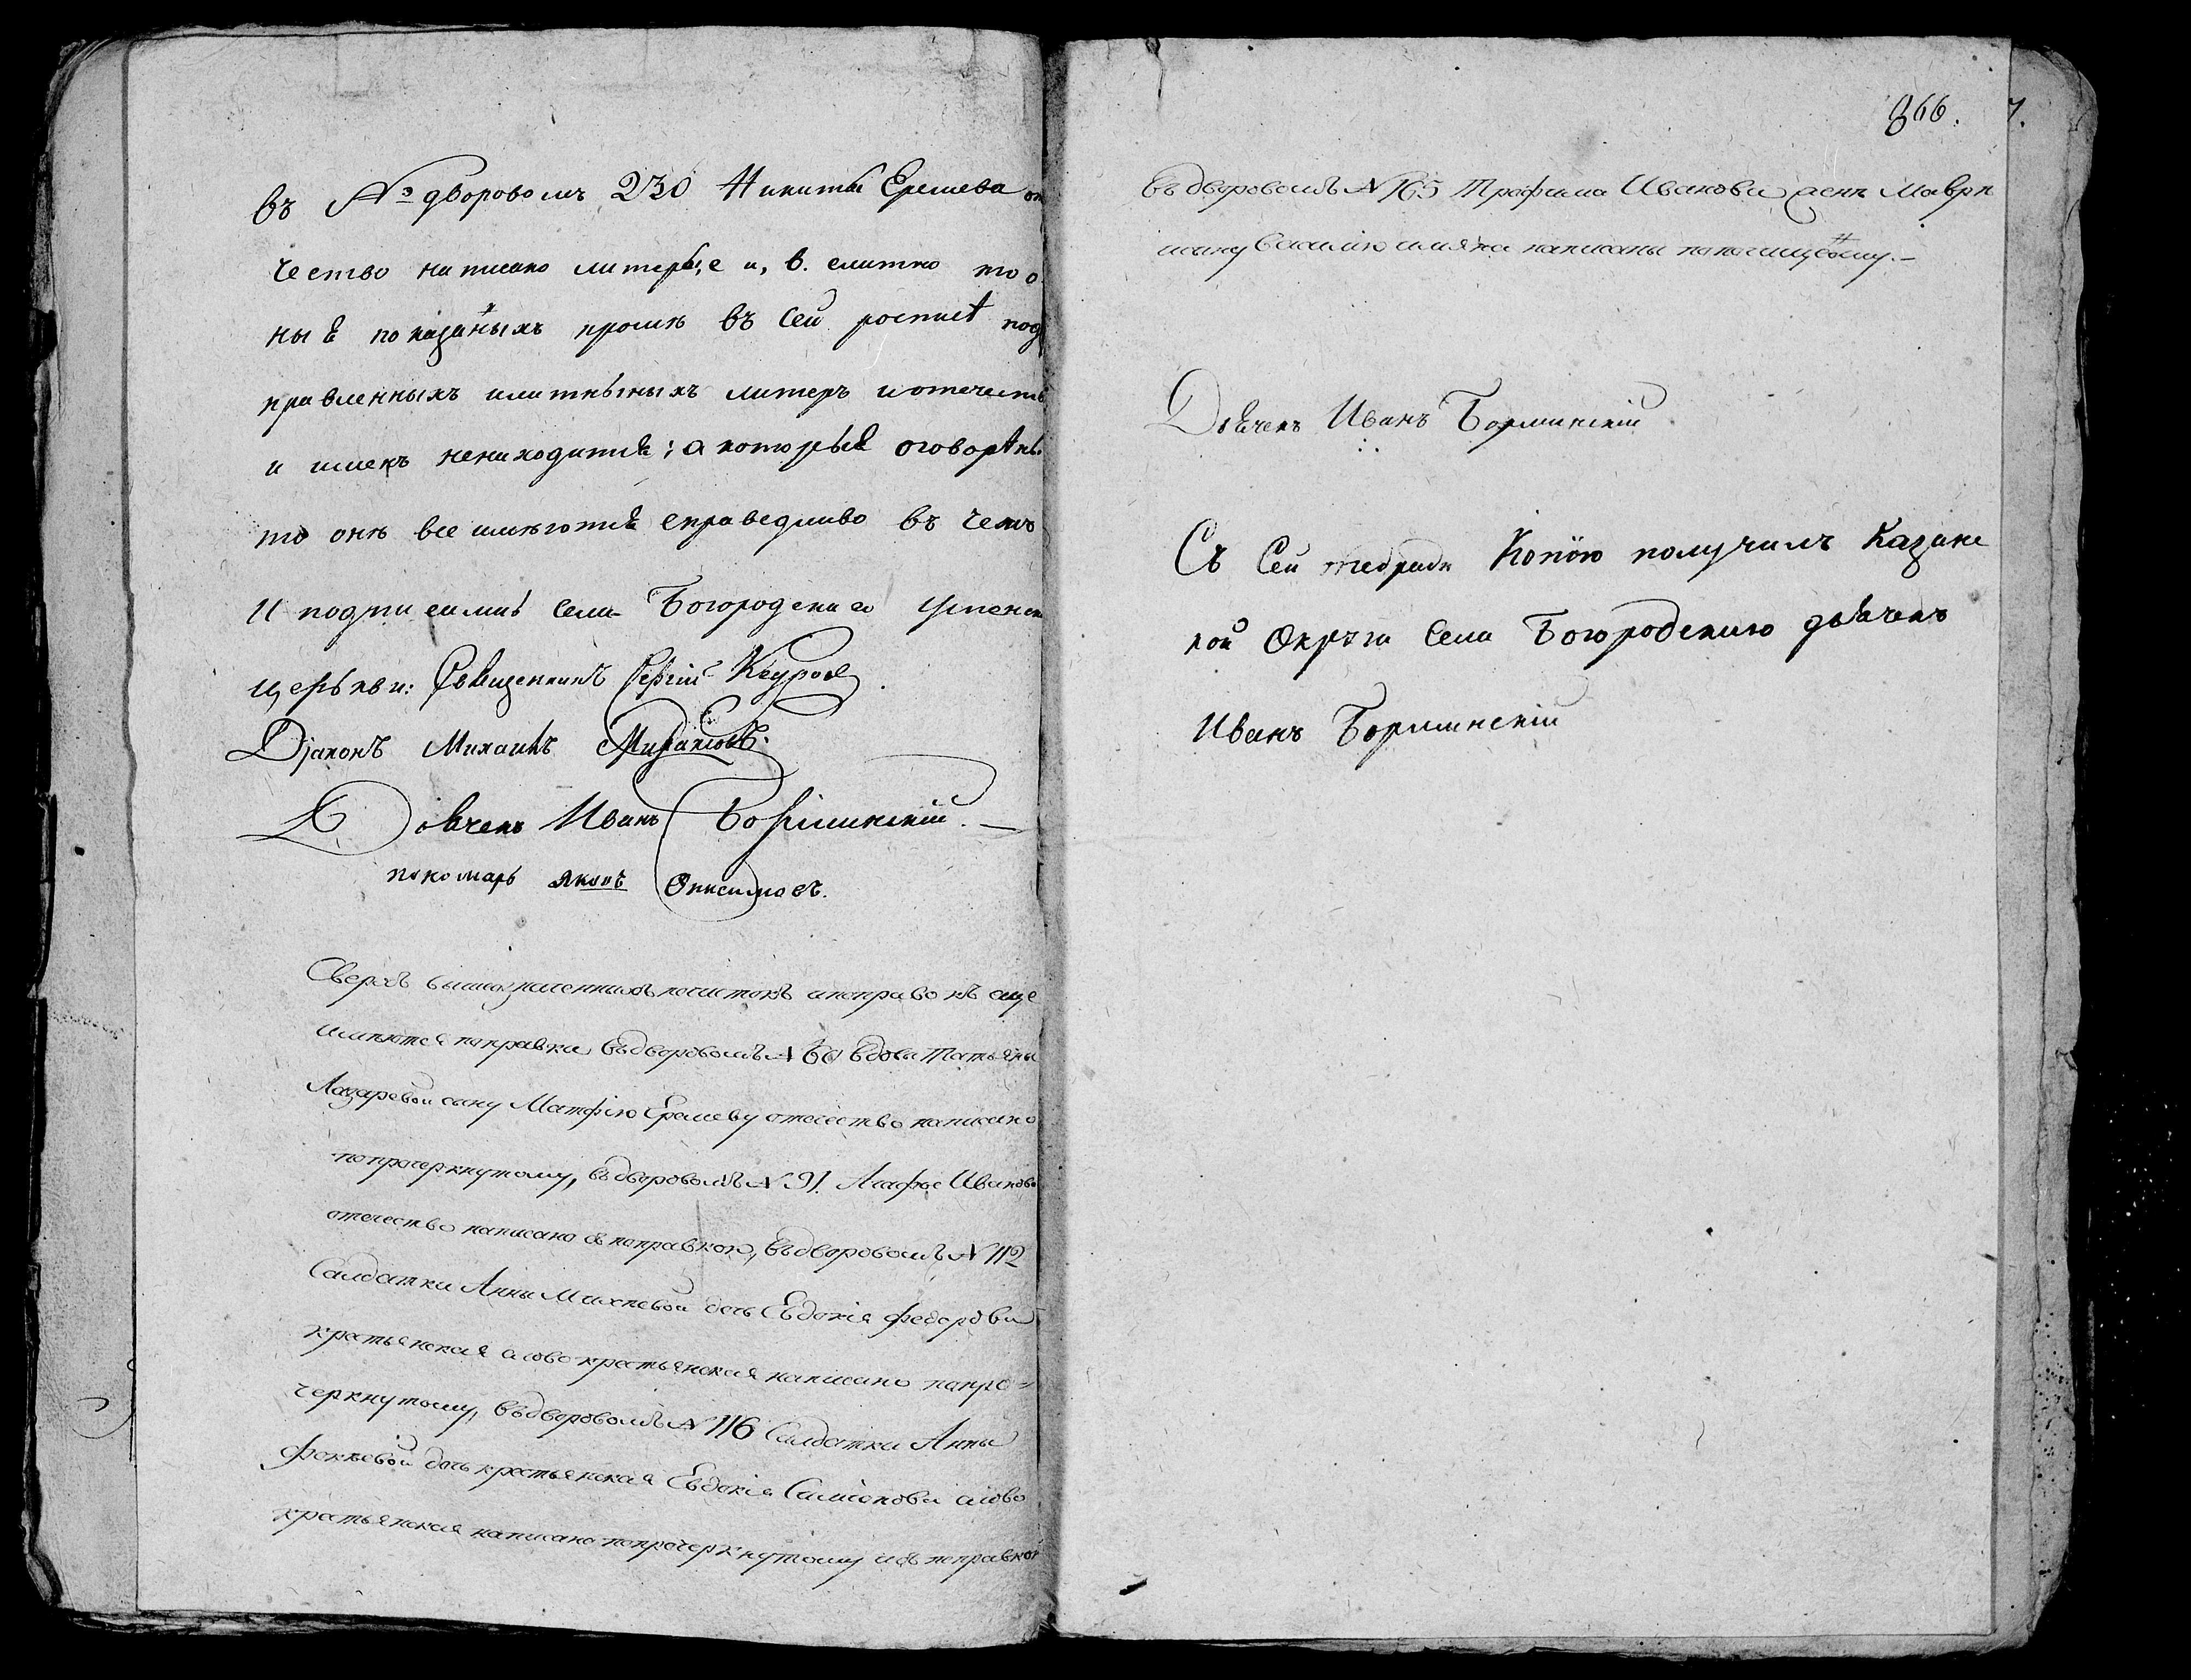 въ № дворовомъ 230 Никиты Еремева от
чество написано литеры, е и, в. слитно то о
ны я показанныхъ кромѣ въ сей росписѣ под
правленныхъ и литныхъ литеръ и отечеств
и именъ ненаходится; а которыя оговорѣны
то онѣ все имѣются справедливо въ чемъ
и подписались села Богородскаго Успенск
церькви: Священникъ Сергий
Дiаконъ Михаилъ
Дьячекъ Иванъ Борминскiй. —
пономарь Яковъ Онисимовъ.
Сверхъ вышеозначенныхъ почистокъ и поправокъ еще
имѣются поправки, въ дворовомъ N 60 вдовы Татьяны
Лазаревой сыну Матфѣю Еремеву отечество написано
попрочеркнутому, въ дворовомъ N 91. Агафье Иванова
отечество написано съ поправкою, въ дворовомъ N 112
Салдатки Анны дочь Евдокiя Федорова
крестьянская слово крестьянская написано попро=
черкнутому, въ дворовомъ N 116 Салдатки Анны
Фокѣевой дочь крестьянская Евдокiя Самсонова слово
крестьянская написано попрочеркнутому и съ поправкой
866.
7.
въ дворовомъ N 165 Трофима Иванова женѣ Маврѣ
и сыну Василию имяна написаны по почищенному. —
Дьячекъ Иванъ Борминскiй
Съ Сей тедради Копiю получилъ Казанс
кой Округи Села Богородскаго дьячекъ
Иванъ Борминскiй